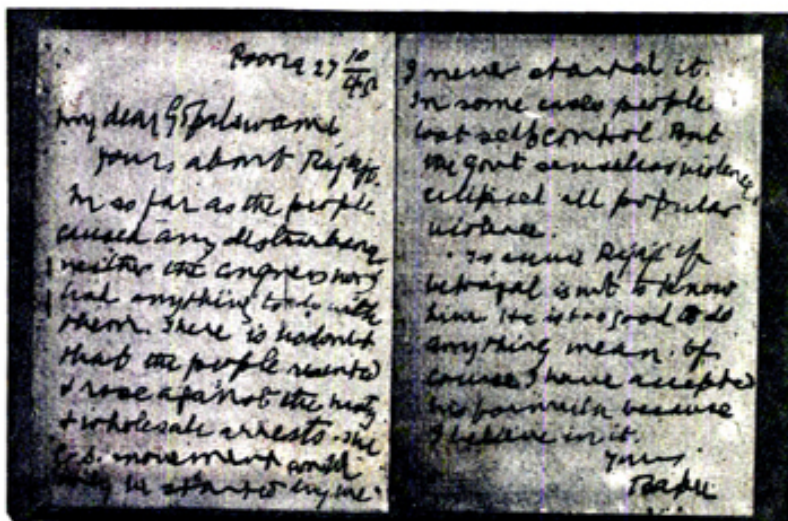 Poona 27 10/45
My dear Gopalswami
Yours about Rajaji.
In so far as the people
caused any disturbance
neither the congress nor I
had anything to do with
them. There is no doubt
that the people resented
& rose against the hasty
& wholesale arrests. The
C.D. movement could
only be started by me.
I never started it.
In some cases people
lost self control. But
the Govt senseless violence
eclipsed all popular
violence.
To accuse Rajaji of
betrayal is not to know
him. He is too good to do
anything mean. Of
course I have accepted
his formula because
I believe in it.
Yours
Bapu